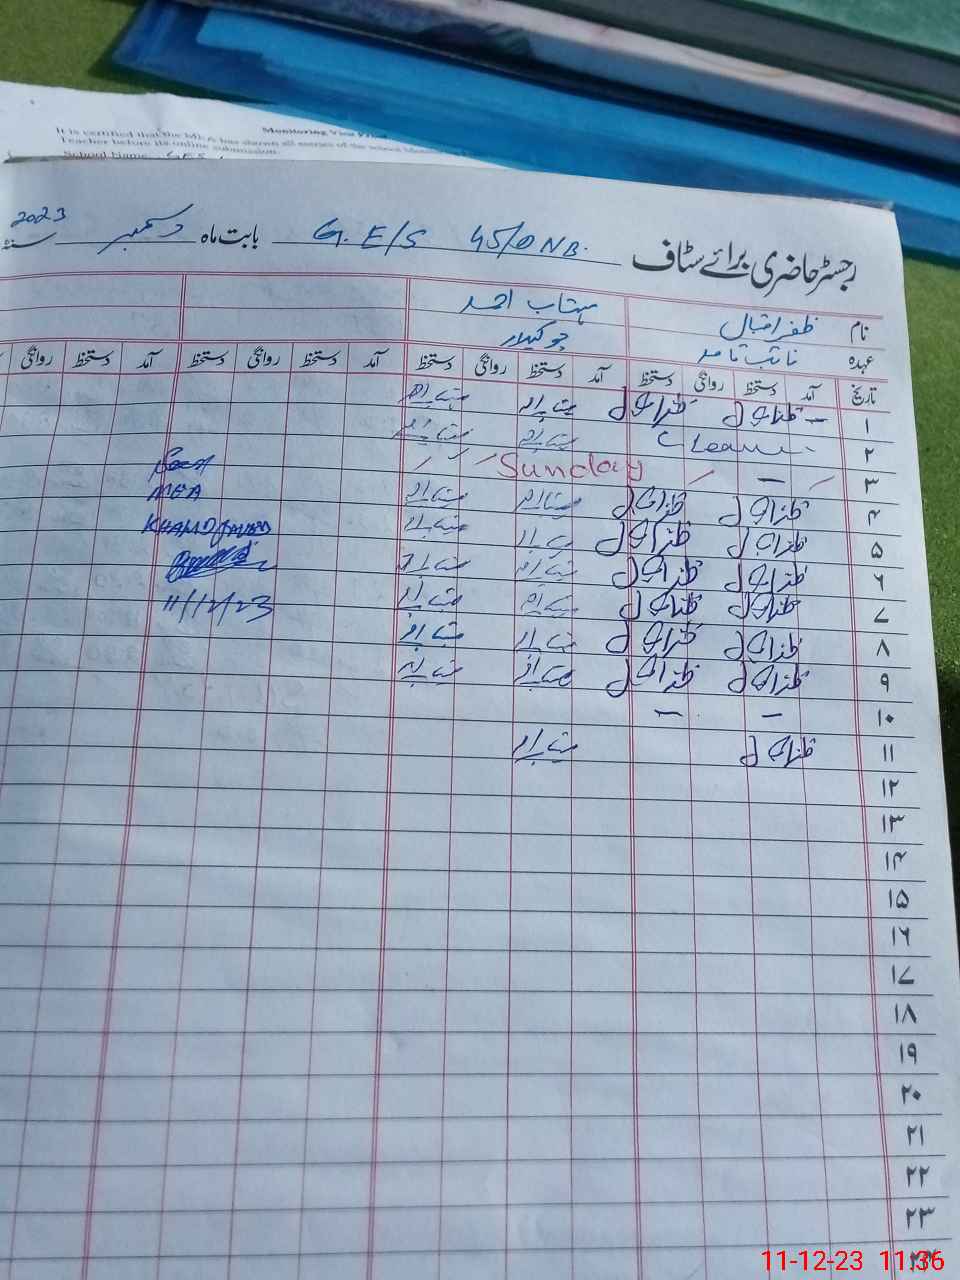 It is certified that the MEA has shown all entries of the school
Monitoring Visit
Teacher before its online submission.
School Name G.E.S
رجسٹر حاضری برائے سٹاف G.E/S 45/DNB. بابت ماہ دسمبر سنہ 2023
نام ظفر اقبال مہتاب احمد
عہدہ نائب قاصد چوکیدار
تاریخ آمد دستخط روانگی دستخط آمد دستخط روانگی دستخط آمد دستخط روانگی دستخط آمد دستخط روانگی
۱ ظفر اقبال ظفر اقبال مہتاب احمد مہتاب احمد
۲ Leave مہتاب احمد مہتاب احمد
۳ – Sunday
۴ ظفر اقبال ظفر اقبال مہتاب احمد مہتاب احمد MEA
۵ ظفر اقبال ظفر اقبال مہتاب احمد مہتاب احمد
۶ ظفر اقبال ظفر اقبال مہتاب احمد مہتاب احمد
۷ ظفر اقبال ظفر اقبال مہتاب احمد مہتاب احمد 11/12/23
۸ ظفر اقبال ظفر اقبال مہتاب احمد مہتاب احمد
۹ ظفر اقبال ظفر اقبال مہتاب احمد مہتاب احمد
۱۰ – –
۱۱ ظفر اقبال مہتاب احمد
۱۲
۱۳
۱۴
۱۵
۱۶
۱۷
۱۸
۱۹
۲۰
۲۱
۲۲
۲۳
۲۴
11-12-23 11:36